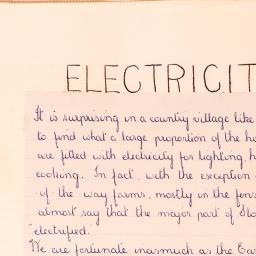 ELECTRICIT
It is surprising in a country village like
to find what a large proportion of the ho
are filled with electricity for lighting, h
cooking. In fact, with the exception
of the way farms, mostly in the fens
almost say that the major part of
electrified.
We are fortunate inasmuch as the Ea